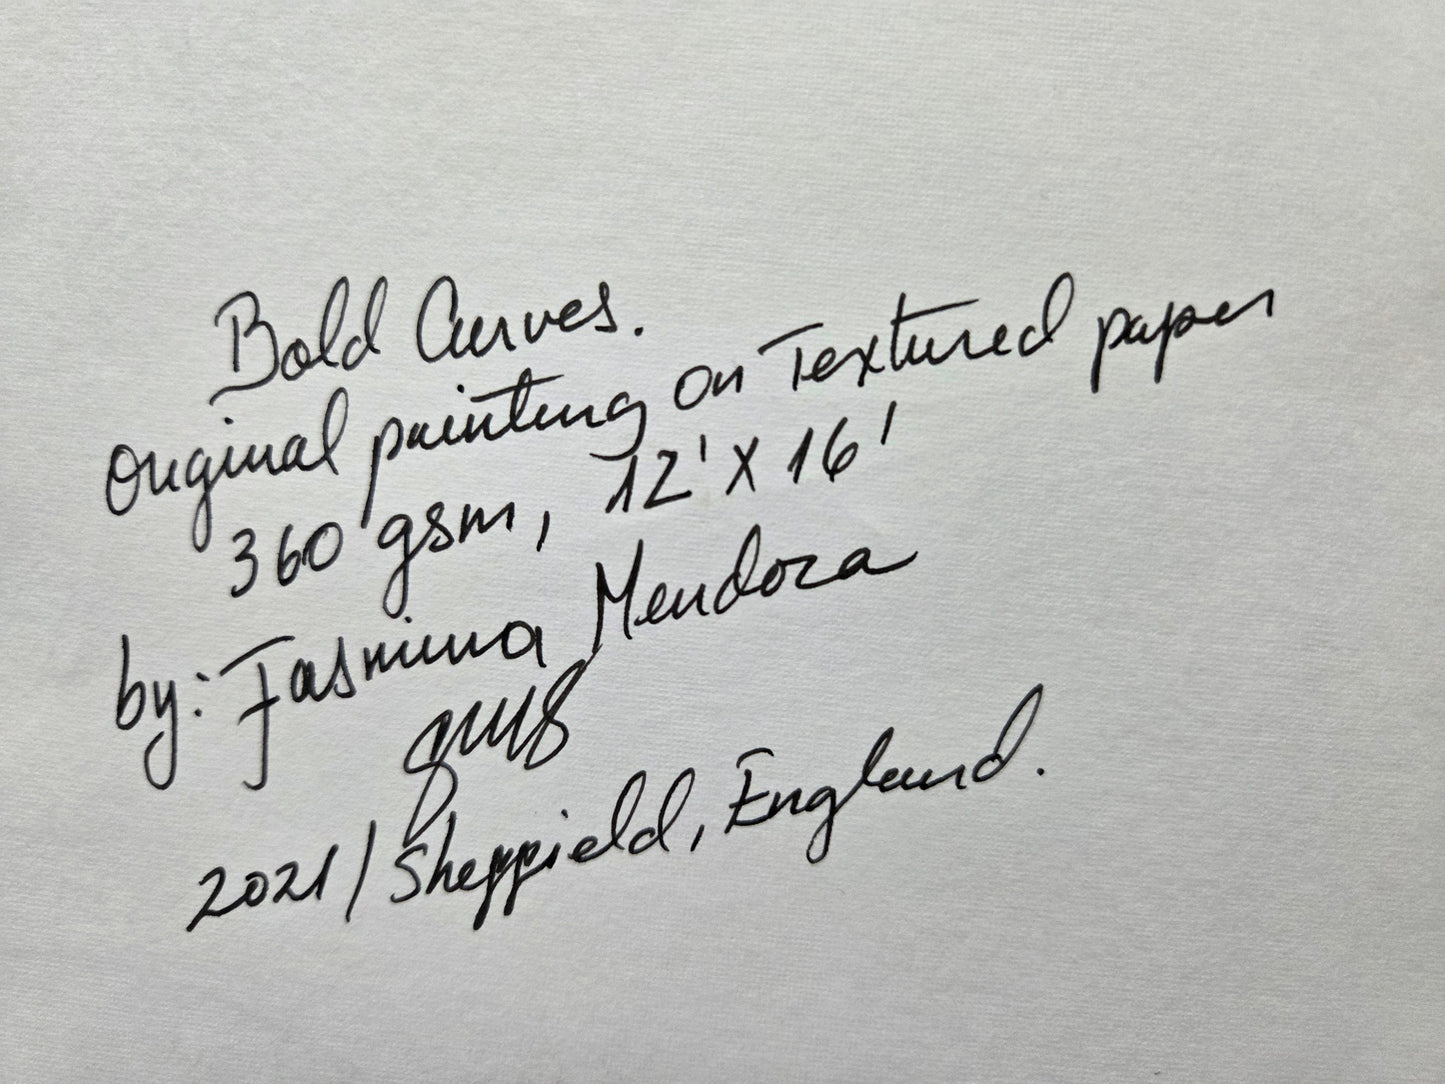 Bold Curves.
Original painting on Textured paper
360 gsm, 12' x 16'
by: Jasmina Mendoza
2021 / Sheffield, England.